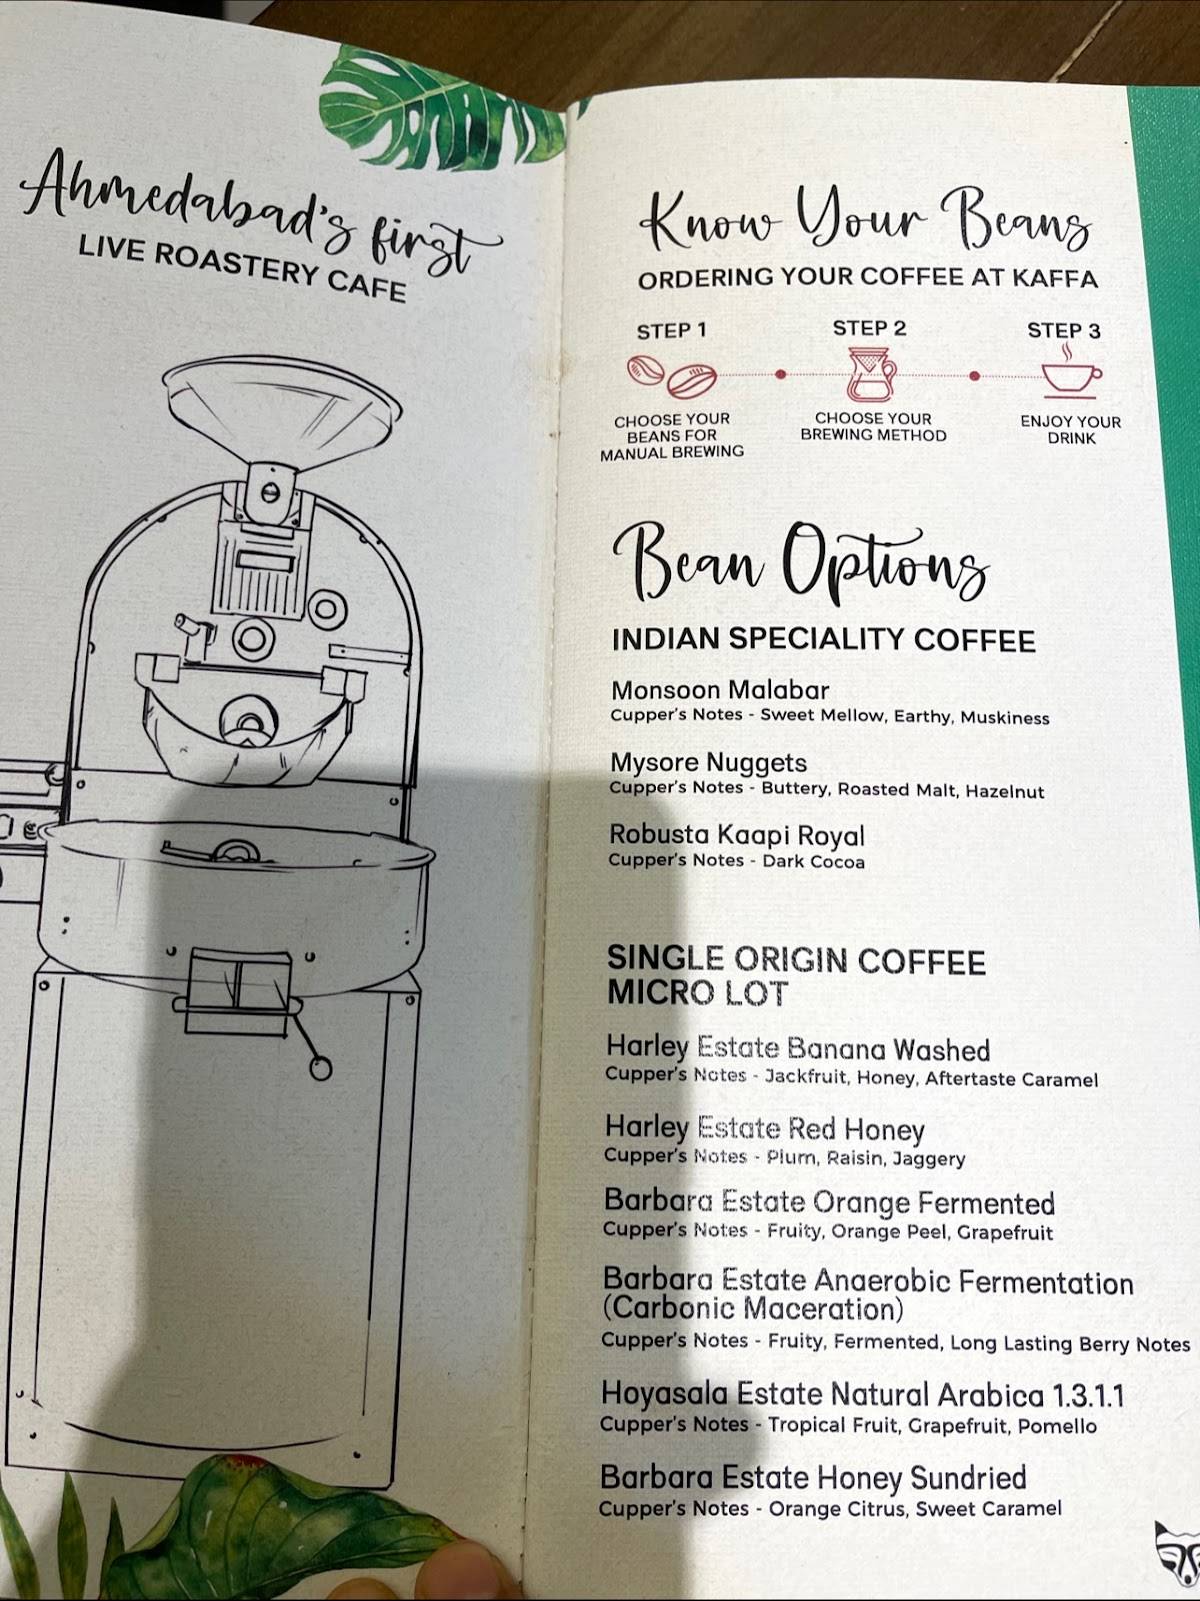 Ahmedabad's first
LIVE ROASTERY CAFE
Know Your Beans
ORDERING YOUR COFFEE AT KAFFA
STEP 1
CHOOSE YOUR
BEANS FOR
MANUAL BREWING
STEP 2
CHOOSE YOUR
BREWING METHOD
STEP 3
ENJOY YOUR
DRINK
Bean Options
INDIAN SPECIALITY COFFEE
Monsoon Malabar
Cupper's Notes - Sweet Mellow, Earthy, Muskiness
Mysore Nuggets
Cupper's Notes - Buttery, Roasted Malt, Hazelnut
Robusta Kaapi Royal
Cupper's Notes - Dark Cocoa
SINGLE ORIGIN COFFEE
MICRO LOT
Harley Estate Banana Washed
Cupper's Notes - Jackfruit, Honey, Aftertaste Caramel
Harley Estate Red Honey
Cupper's Notes - Plum, Raisin, Jaggery
Barbara Estate Orange Fermented
Cupper's Notes - Fruity, Orange Peel, Grapefruit
Barbara Estate Anaerobic Fermentation
(Carbonic Maceration)
Cupper's Notes - Fruity, Fermented, Long Lasting Berry Notes
Hoyasala Estate Natural Arabica 1.3.1.1
Cupper's Notes - Tropical Fruit, Grapefruit, Pomello
Barbara Estate Honey Sundried
Cupper's Notes - Orange Citrus, Sweet Caramel